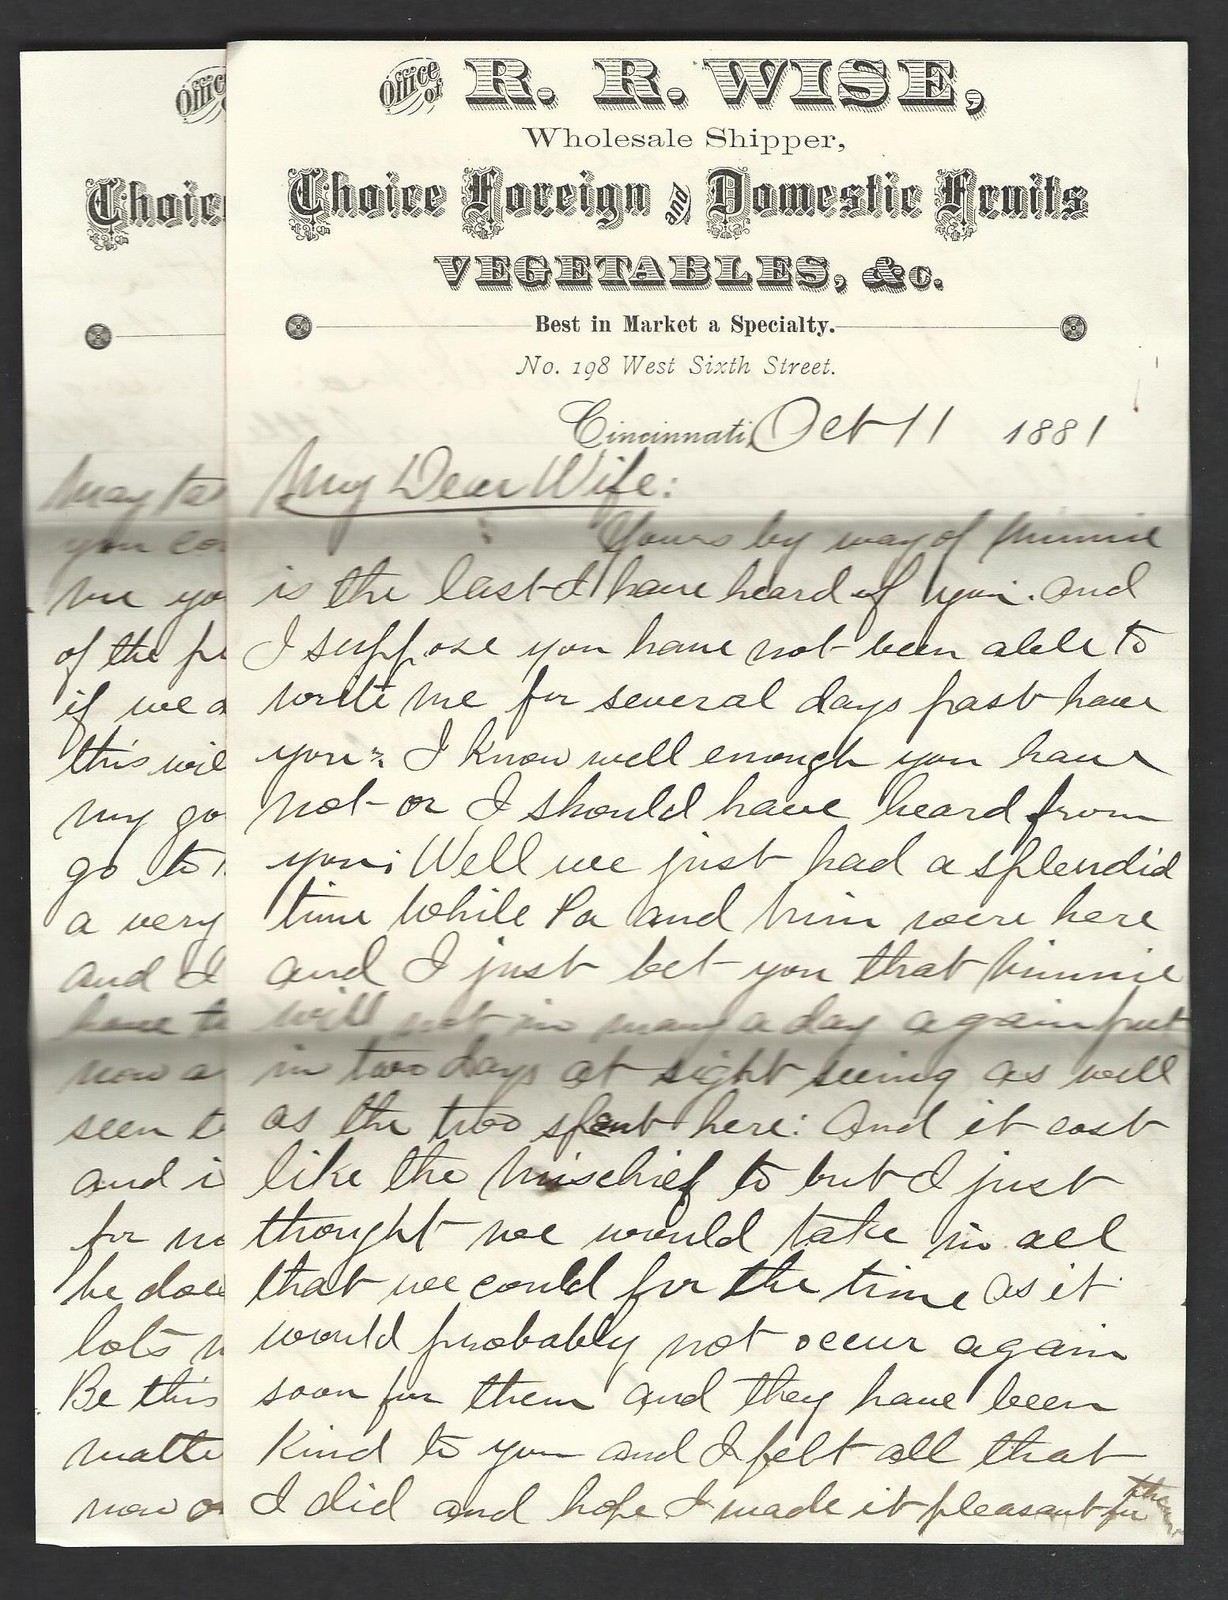 Office of R. R. WISE,
Wholesale Shipper,
Choice Foreign and Domestic Fruits
VEGETABLES, &c.
Best in Market a Specialty.
No. 198 West Sixth Street.
Cincinnati, Oct 11 1881
My Dear Wife:
Yours by way of Minnie
is the last I have heard of you. And
I suppose you have not been able to
write me for several days past have
you? I know well enough you have
not or I should have heard from
you; Well we just had a splendid
time while Pa and Min were here
and I just bet you that Minnie
will not in many a day again put
in two days at sight seeing as well
as the two spent here: And it cost
like the mischief to but I just
thought we would take in all
that we could for the time as it
would probably not occur again
soon for them and they have been
Kind to you and I felt all that
I did and hope I made it pleasant for them
Office
Choic
May
you
me yo
of the
if we a
this wil
my go
go to
a very
and I
have to
now a
seen t
and i
for
he doe
lots
Be this
matte
now o